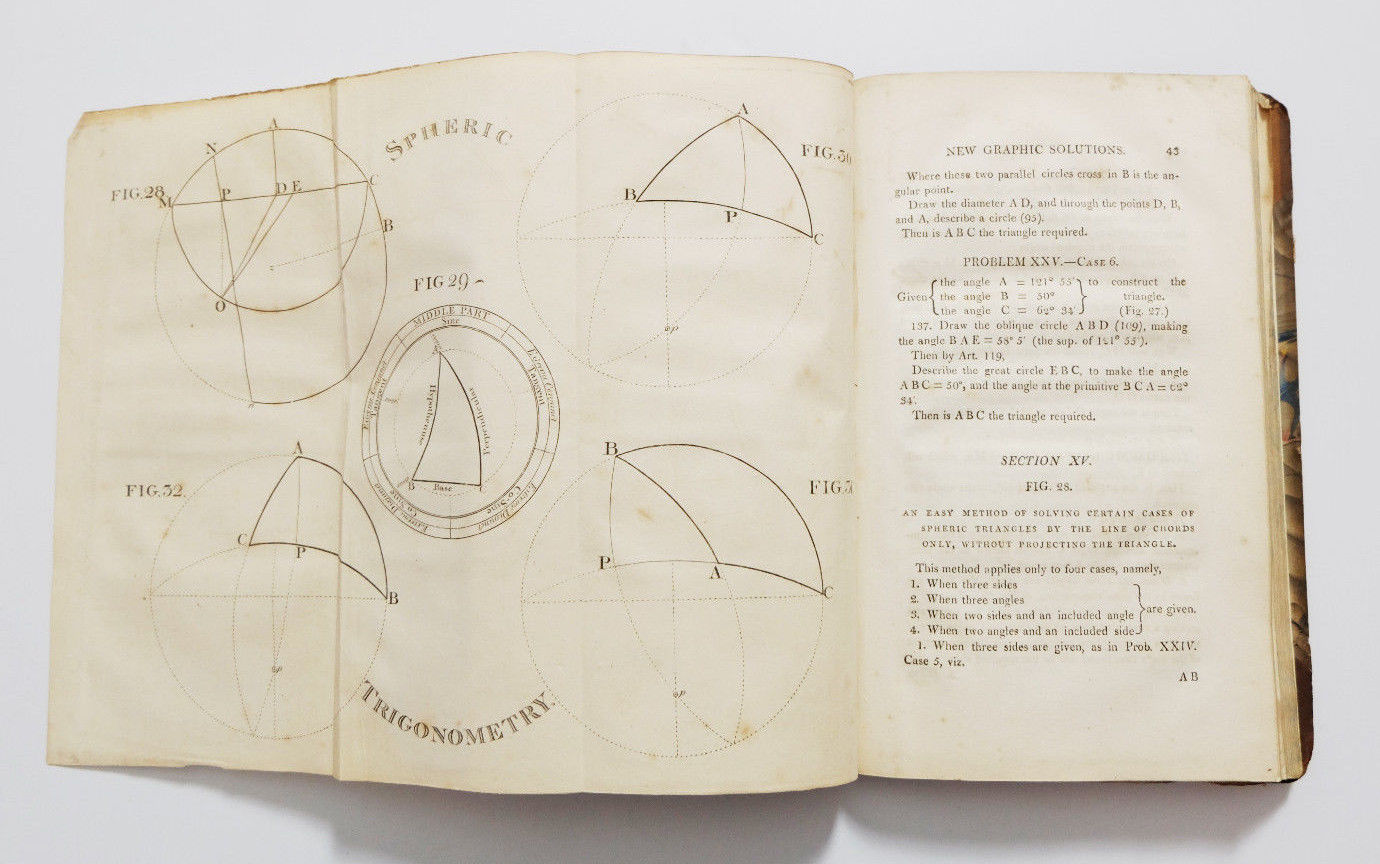 SPHERIC
FIG.28
A
N
M
P
D E
C
B
O
FIG 29
MIDDLE PART
Sine
Extreme Conjunct
Tangent
Hypothenuse
Perpendicular
Base
B
Co Sine
Extreme Disjunct
FIG.30
A
B
P
C
P
FIG.32
A
C
P
B
P
FIG.3
B
P
A
C
P
TRIGONOMETRY.
NEW GRAPHIC SOLUTIONS. 43
Where these two parallel circles cross in B is the an-
gular point.
Draw the diameter A D, and through the points D, B,
and A, describe a circle (95).
Then is A B C the triangle required.
PROBLEM XXV.—CASE 6.
the angle A = 121° 55′ to construct the
Given the angle B = 50° triangle.
the angle C = 62° 34′ (Fig. 27.)
137. Draw the oblique circle A B D (109), making
the angle B A E = 58° 5′ (the sup. of 121° 55′).
Then by Art. 119,
Describe the great circle E B C, to make the angle
A B C = 50°, and the angle at the primitive B C A = 62°
34′.
Then is A B C the triangle required.
SECTION XV.
FIG. 28.
AN EASY METHOD OF SOLVING CERTAIN CASES OF
SPHERIC TRIANGLES BY THE LINE OF CHORDS
ONLY, WITHOUT PROJECTING THE TRIANGLE.
This method applies only to four cases, namely,
1. When three sides
2. When three angles
3. When two sides and an included angle are given.
4. When two angles and an included side
1. When three sides are given, as in Prob. XXIV.
Case 5, viz.
A B